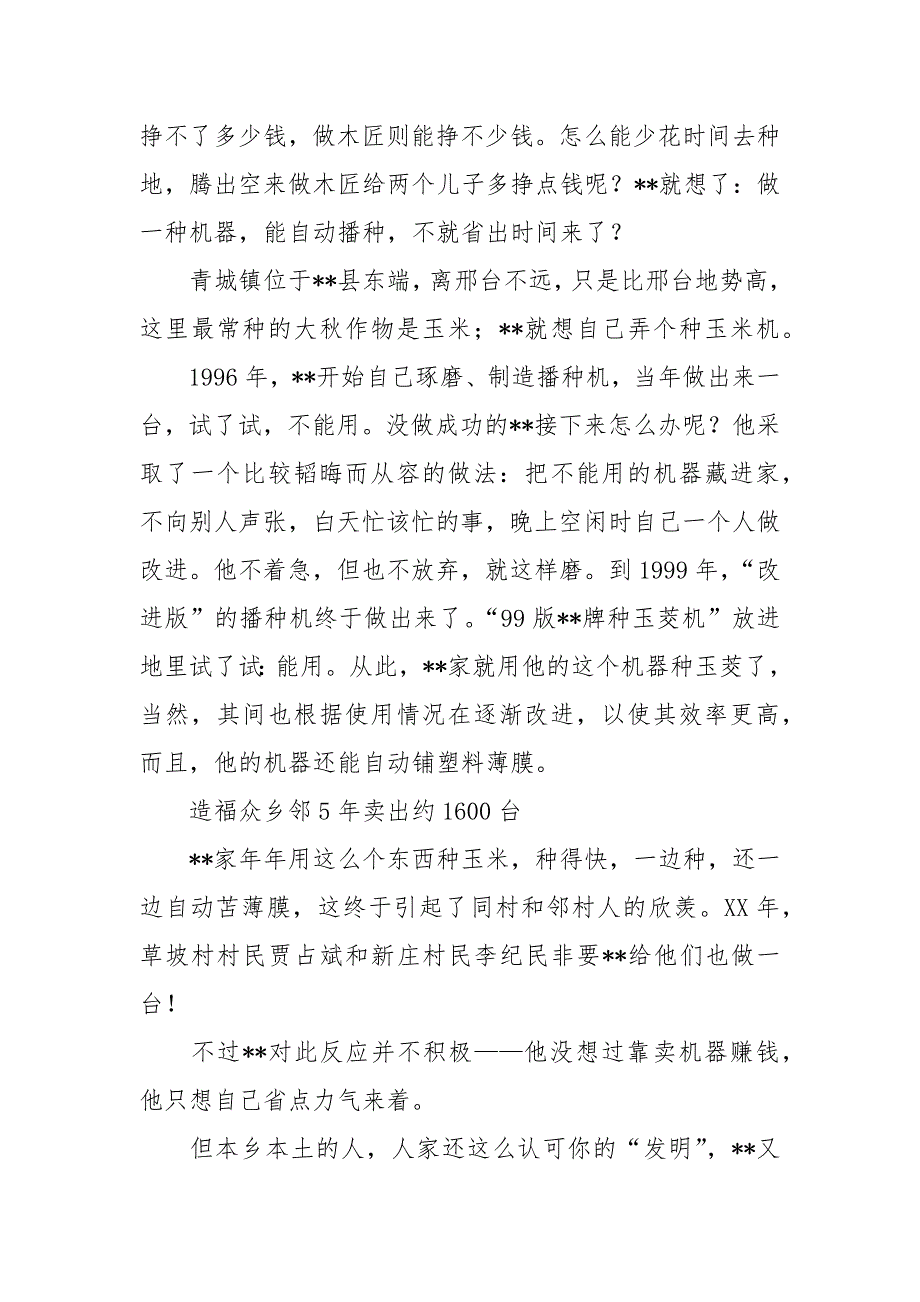 挣不了多少钱，做木匠则能挣不少钱。怎么能少花时间去种
地，腾出空来做木匠给两个儿子多挣点钱呢？**就想了：做
一种机器，能自动播种，不就省出时间来了？
青城镇位于**县东端，离邢台不远，只是比邢台地势高，
这里最常种的大秋作物是玉米；**就想自己弄个种玉米机。
1996 年，**开始自己琢磨、制造播种机，当年做出来一
台，试了试，不能用。没做成功的**接下来怎么办呢？他采
取了一个比较韬晦而从容的做法：把不能用的机器藏进家，
不向别人声张，白天忙该忙的事，晚上空闲时自己一个人做
改进。他不着急，但也不放弃，就这样磨。到 1999 年，“改
进版”的播种机终于做出来了。“99 版**牌种玉茭机”放进
地里试了试：能用。从此，**家就用他的这个机器种玉茭了，
当然，其间也根据使用情况在逐渐改进，以使其效率更高，
而且，他的机器还能自动铺塑料薄膜。
造福众乡邻 5 年卖出约 1600 台
**家年年用这么个东西种玉米，种得快，一边种，还一
边自动苫薄膜，这终于引起了同村和邻村人的欣羡。XX 年，
草坡村村民贾占斌和新庄村民李纪民非要**给他们也做一
台！
不过**对此反应并不积极——他没想过靠卖机器赚钱，
他只想自己省点力气来着。
但本乡本土的人，人家还这么认可你的“发明”，**又